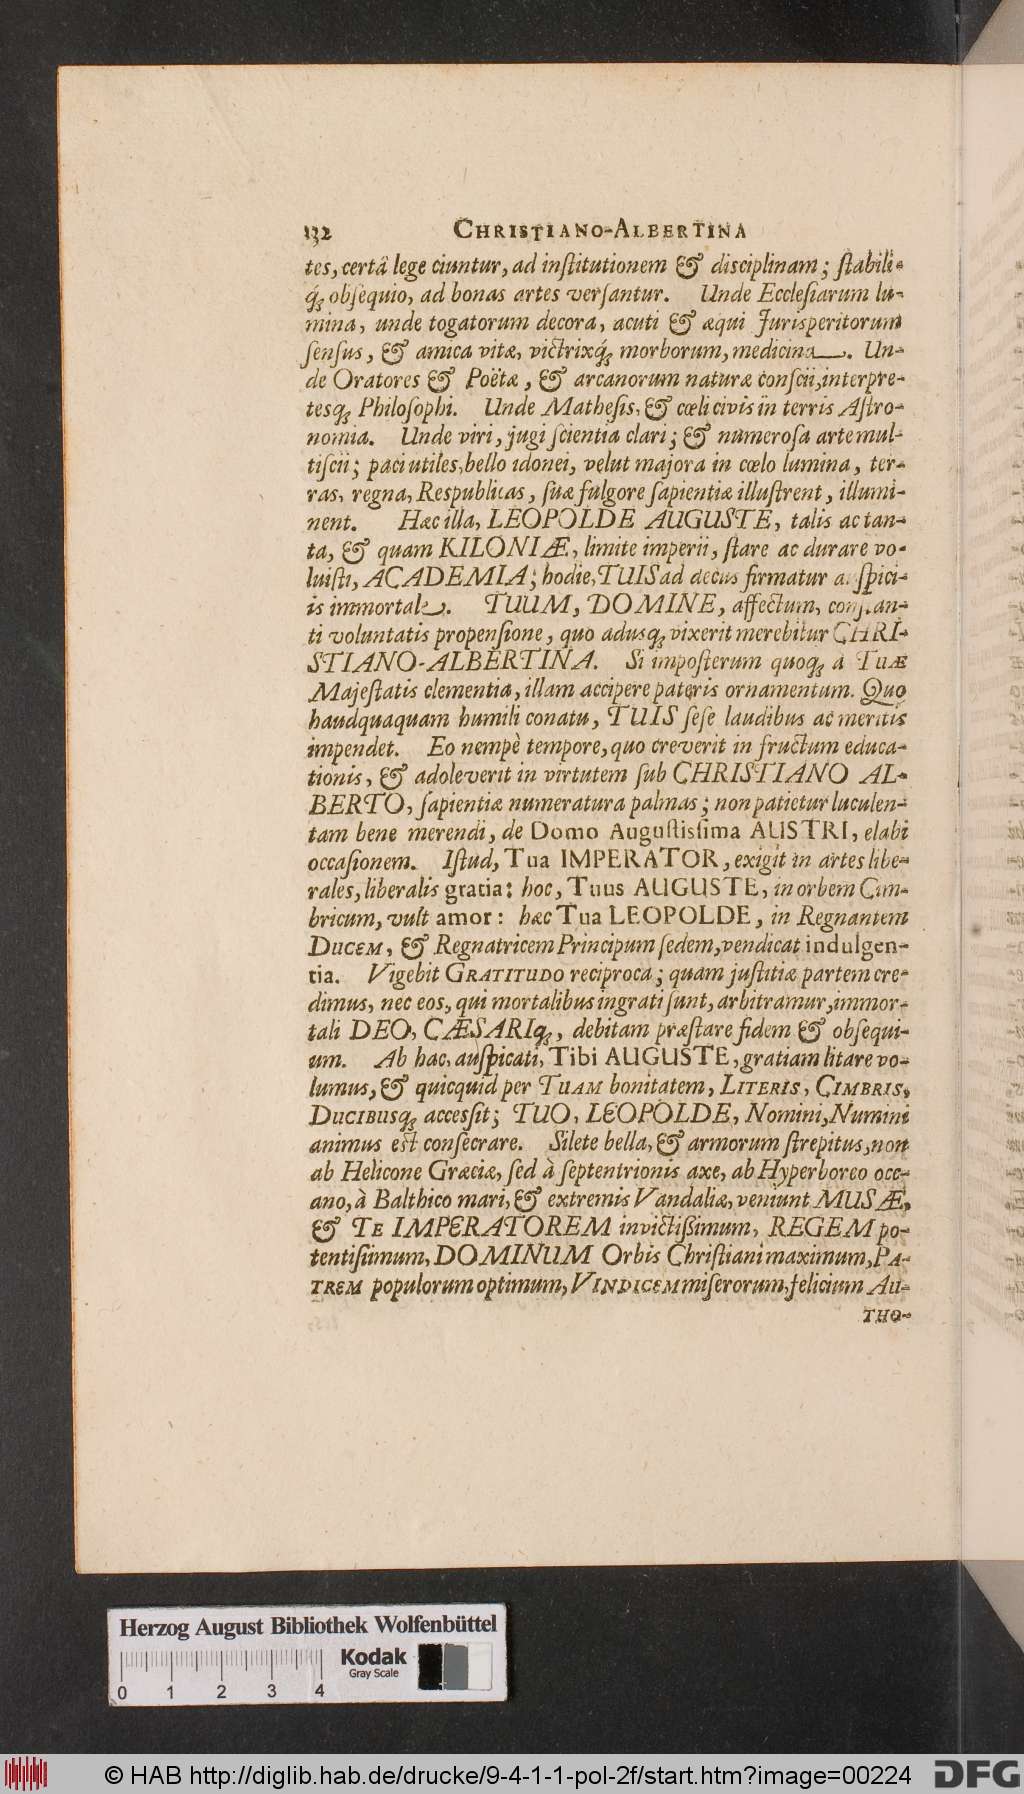 132 CHRISTIANO-ALBERTINA
tes, certâ lege ciuntur, ad inſtitutionem & diſciplinam; ſtabili-
q́; obſequio, ad bonas artes verſantur. Unde Eccleſiarum lu-
mina, unde togatorum decora, acuti & æqui Juriſperitorum
ſenſus, & amica vitæ, victrixq́; morborum, medicina. Un-
de Oratores & Poëtæ, & arcanorum naturæ conſcii, interpre-
tesq; Philoſophi. Unde Matheſis, & cœli civis in terris Aſtro-
nomia. Unde viri, jugi ſcientiâ clari; & numeroſa arte mul-
tiſcii; paci utiles, bello idonei, velut majora in cœlo lumina, ter-
ras, regna, Respublicas, ſuæ fulgore ſapientiæ illuſtrent, illumi-
nent. Hæc illa, LEOPOLDE AUGUSTE, talis ac tan-
ta, & quam KILONIÆ, limite imperii, ſtare ac durare vo-
luiſti, ACADEMIA; hodie, TUIS ad decus firmatur auſpici-
is immortale. TUUM, DOMINE, affectum, conſtan-
ti voluntatis propenſione, quo adusq; vixerit merebitur CHRI-
STIANO-ALBERTINA. Si impoſterum quoq; à TUÆ
Majeſtatis clementia, illam accipere pateris ornamentum. Quo
haudquaquam humili conatu, TUIS ſeſe laudibus ac meritis
impendet. Eo nempè tempore, quo creverit in fructum educa-
tionis, & adoleverit in virtutem ſub CHRISTIANO AL-
BERTO, ſapientiæ numeratura palmas; non patietur luculen-
tam bene merendi, de Domo Auguſtiſſima AUSTRI, elabi
occaſionem. Iſtud, Tua IMPERATOR, exigit in artes libe-
rales, liberalis gratia: hoc, Tuus AUGUSTE, in orbem Cim-
bricum, vult amor: hæc Tua LEOPOLDE, in Regnantem
DUCEM, & Regnatricem Principum ſedem, vendicat indulgen-
tia. Vigebit GRATITUDO reciproca; quam juſtitiæ partem cre-
dimus, nec eos, qui mortalibus ingrati ſunt, arbitramur, immor-
tali DEO, CÆSARIq;, debitam præſtare fidem & obſequi-
um. Ab hac, auſpicati, Tibi AUGUSTE, gratiam litare vo-
lumus, & quicquid per TUAM bonitatem, LITERIS, CIMBRIS,
DUCIBUSq; acceſſit; TUO, LEOPOLDE, Nomini, Numini
animus est conſecrare. Silete bella, & armorum ſtrepitus, non
ab Helicone Græciæ, ſed à ſeptentrionis axe, ab Hyperboreo oce-
ano, à Balthico mari, & extremis Vandaliæ, veniunt MUSÆ,
& TE IMPERATOREM invictißimum, REGEM po-
tentiſſimum, DOMINUM Orbis Chriſtiani maximum, PA-
TREM populorum optimum, VINDICEM miſerorum, felicium AU-
THO-
Herzog August Bibliothek Wolfenbüttel
Kodak
Gray Scale
0 1 2 3 4
© HAB http://diglib.hab.de/drucke/9-4-1-1-pol-2f/start.htm?image=00224
DFG